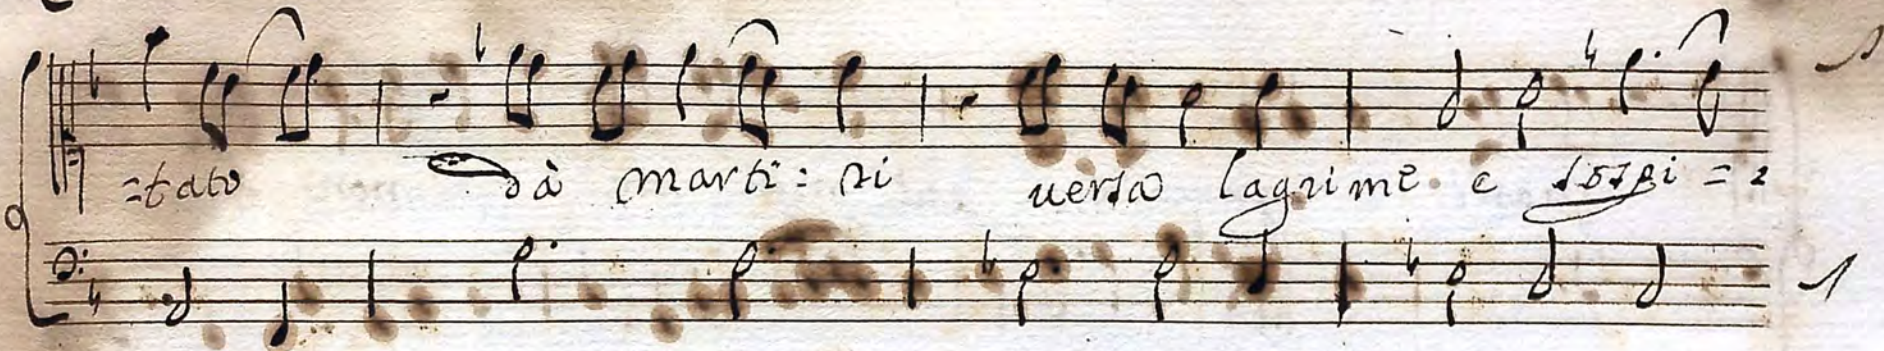 =tato dà marti=ri uersa lagrime e sospi=